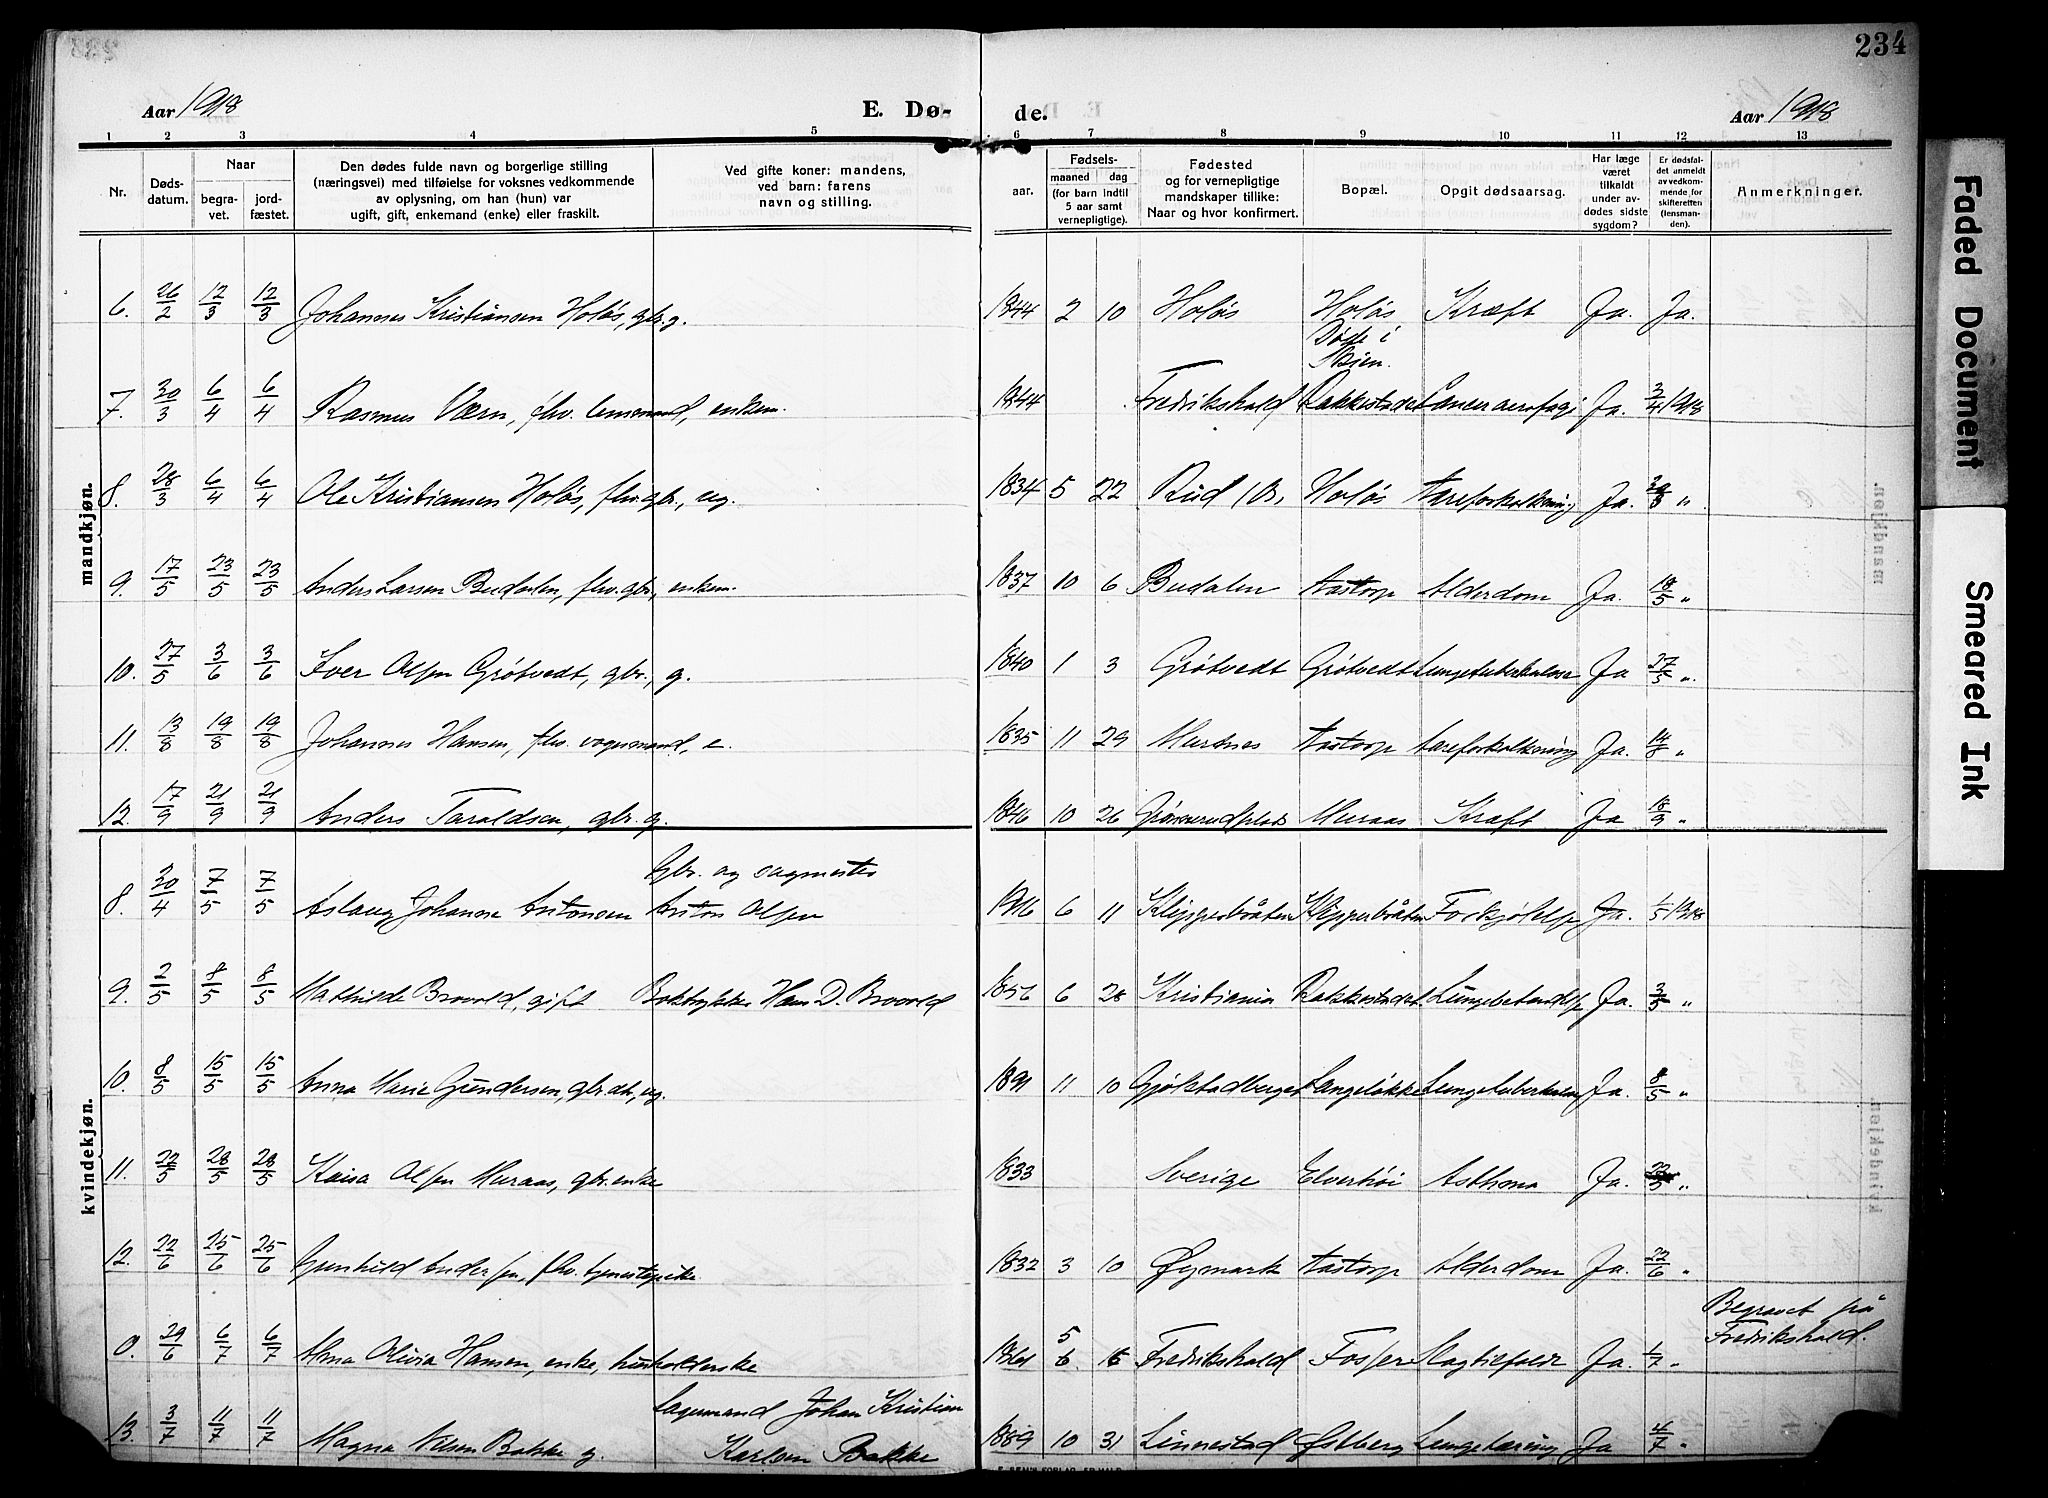 234
Aar 1918 E. Dø- de. Aar 1918
1 2 3 4 5 6 7 8 9 10 11 12 13
Nr. Døds-datum. Naar begra-vet. jord-fæstet. Den dødes fulde navn og borgerlige stilling (næringsvei) med tilføielse for voksnes vedkommende av oplysning, om han (hun) var ugift, gift, enkemand (enke) eller fraskilt. Ved gifte koner: mandens, ved barn: farens navn og stilling. aar. Fødsels- maaned dag (for barn indtil 5 aar samt vernepligtige). Fødested og for vernepligtige mandskaper tillike: Naar og hvor konfirmert. Bopæl. Opgit dødsaarsag. Har læge været tilkaldt under av-dødes sidste sygdom? Er dødsfal-det anmeldt av vedkom-mende for skifteretten (lensman-den). Anmerkninger.
mandkjøn.
6. 26/2 12/3 12/3 Johannes Kristiansen Holøs, gbr. g. 1844 2 10 Holøs Holøs Kræft Ja. Ja.
Døde i
Skien.
7. 30/3 6/4 6/4 Rasmus Værn, fhv. lensmand, enkem. 1844 Fredrikshald Rakkestadet Cancer aerofagi Ja. 3/4 1918
8. 28/3 6/4 6/4 Ole Kristiansen Holøs, fhv. gbr., ug. 1834 5 22 Rud Holøs Aareforkalkning Ja. "
9. 17/5 23/5 23/5 Anders Larsen Budalen, fhv. gbr., enkem. 1837 10 6 Budalen Aastorp Alderdom Ja. 18/5 "
10. 27/5 3/6 3/6 Iver Olsen Grøtvedt, gbr., g. 1840 1 3 Grøtvedt Grøtvedt Lungetuberkulose Ja 27/5 "
11. 13/8 19/8 19/8 Johannes Hansen, fhv. vognmand, e. 1835 11 29 Aastorp Aareforkalkning Ja. 14/8 "
12. 17/9 21/9 21/9 Anders Taraldsen, gbr. g. 1846 10 26 Muraas Kræft Ja 18/9 "
kvindekjøn.
Gbr. og sagmester
8. 30/4 7/5 7/5 Aslaug Johanne Antonsen Anton Olsen 1916 6 11 Klypperbråten Klypperbråten Ja. 1/5 1918
9. 2/5 8/5 8/5 Mathilde Brovold, gift Boktrykker Hans D. Brovold 1856 6 28 Kristiania Rakkestadet Lungebetændelse Ja. 3/5 "
10. 8/5 15/5 15/5 Anna Marie Gundersen, gbr.dt., ug. 1891 11 10 Gjølstadberget Langeløkke Lungetuberkulose Ja. 8/5 "
11. 22/5 28/5 28/5 Kaisa Olsen Muraas, gbr. enke 1833 Sverige Elverhøi Asthma Ja. "
12. 22/6 25/6 25/6 Gunhild Andersen, fhv. tjenestepike 1832 3 10 Øymark Aastorp Alderdom Ja. 22/6 "
Begravet på
0. 29/6 6/7 6/7 Alma Olivia Hansen, enke, husholderske 1861 Fredrikshald Fosser Slagtilfælde Ja. 1/7 " Fredrikshald.
Sagmand Johan Kristian
13. 3/7 11/7 11/7 Magna Nilsen Bakke g. Karlsen Bakke 1889 10 31 Linnestad Østberg Lungetæring Ja 4/7 "
Faded Document
Smeared Ink